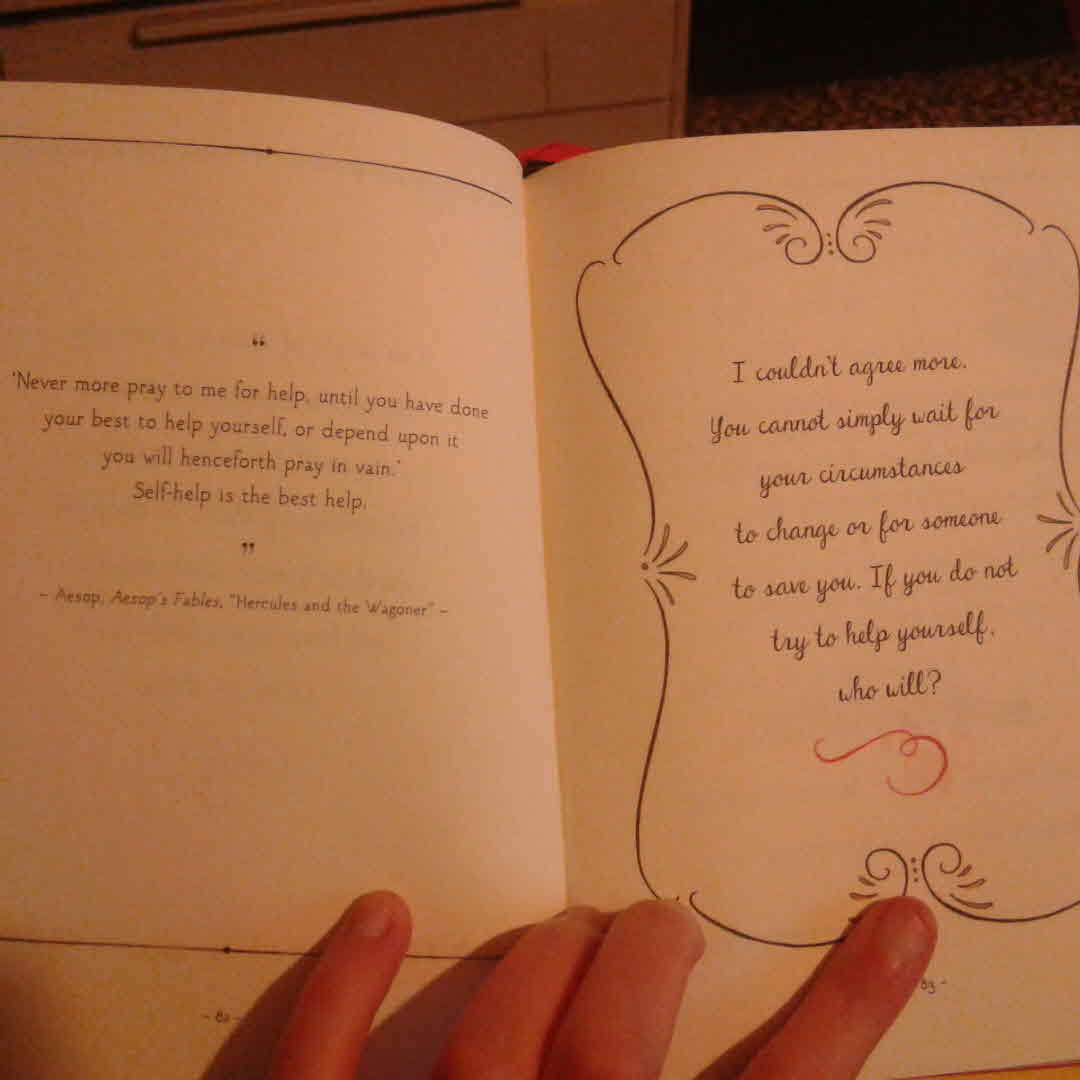 “
'Never more pray to me for help, until you have done
your best to help yourself, or depend upon it
you will henceforth pray in vain.'
Self-help is the best help.
”
– Aesop, Aesop's Fables, "Hercules and the Wagoner" –
- 82 -
I couldn't agree more.
You cannot simply wait for
your circumstances
to change or for someone
to save you. If you do not
try to help yourself,
who will?
83 -